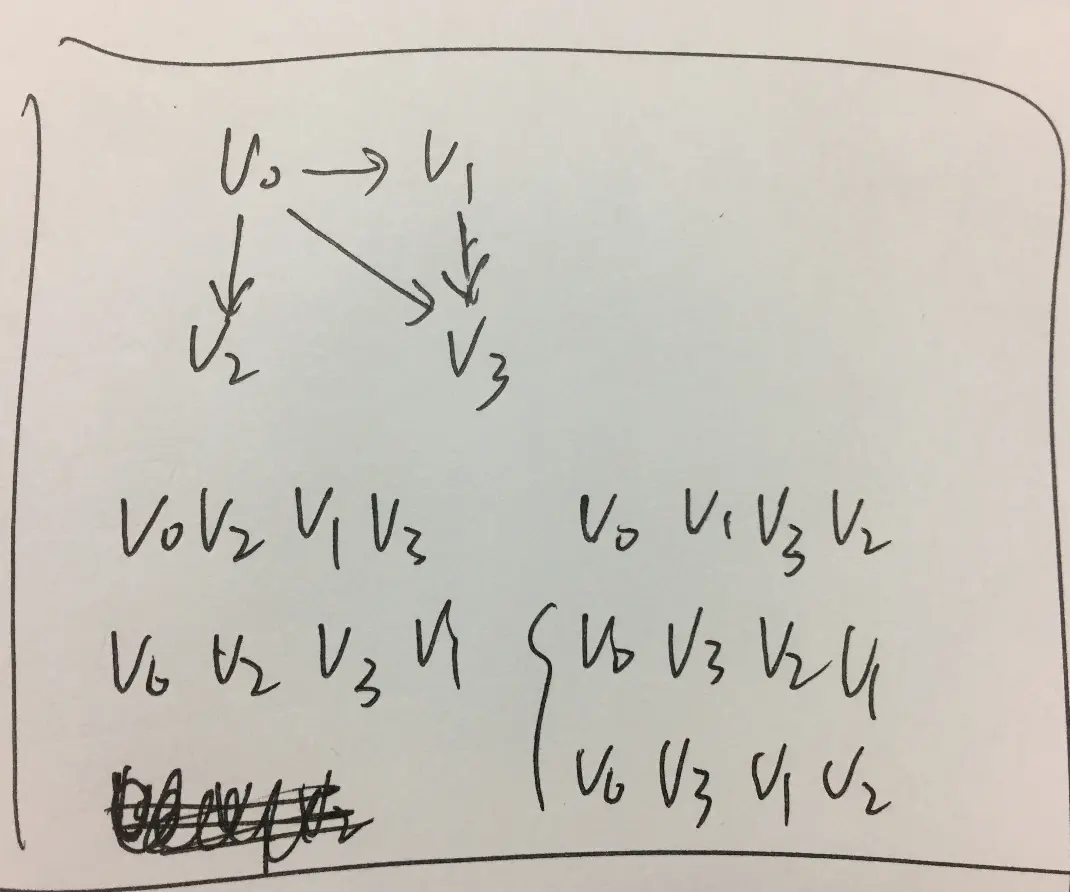 V0 → V1
V2 V3
V0 V2 V1 V3
V0 V1 V3 V2
V0 V2 V3 V1
V0 V3 V2 V1
V0 V3 V1 V2